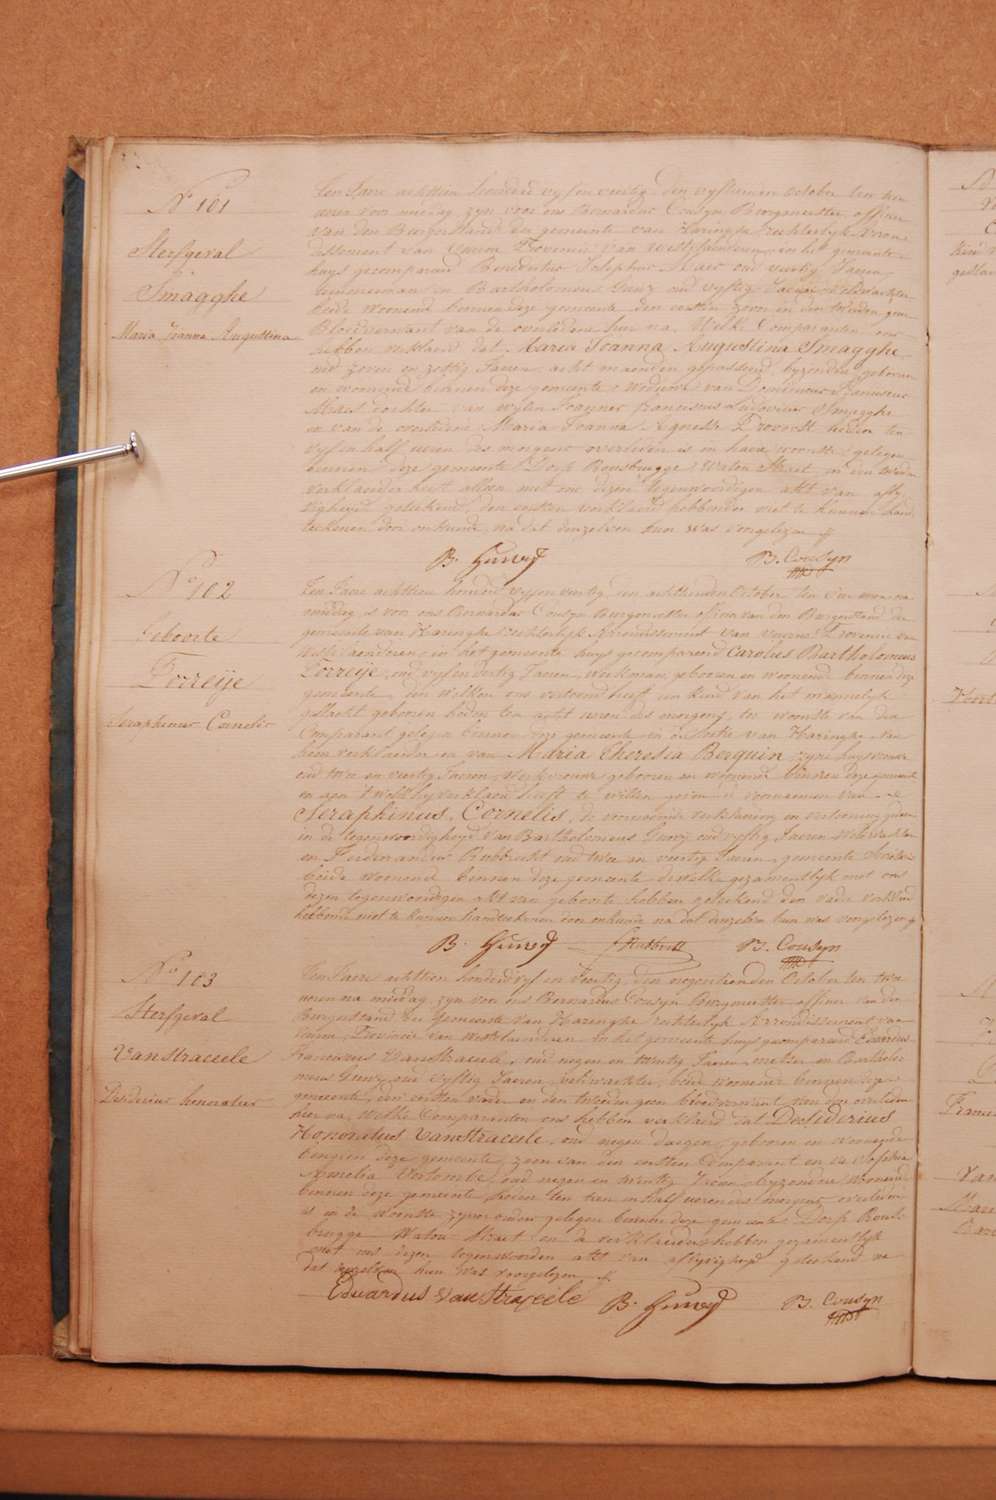 N° 101
Sterfgeval
Smagghe
Maria Joanna Augustina
Ten Jaere achttien honderd vyf en veertig den vyfthienen October ten twee
uren voor middag zyn voor ons Bernardus Cousyn Burgemeester officier
van den Burgerstand der gemeente van Haringhe rechterlyk Arron-
dissement van Veurne Provencie van Westvlaenderen, in het gemeente
huys gecompareerd Benedictus Josephus Maes oud veertig Jaeren
timmerman en Bartholomeus Gunz oud vyftig Jaeren veldwachter
beide woonende binnen deze gemeente den eersten zoon en den tweeden geen
Bloedverwant van de overledene hier na, Welke Comparanten ons
hebben verklaerd dat Maria Joanna Augustina Smagghe
oud zeven en zestig Jaeren, acht maenden gepasseerd byzondere geboren
en woonende binnen deze gemeente Weduwe van Dominicus Franciscus
Maes dochter van wylen Joannes franciscus Ludovicus Smagghe
en van de overledene Maria Joanna Agnesse Provoost heden ten
vyf en half uren des morgens overleden is in haere woonste gelegen
binnen deze gemeente Dorp Rousbrugge Watou Straet en den tweeden
verklaerder heeft alleen met ons dezen tegenwoordigen akt van afly-
vigheyd geteekend, den eersten verklaerd hebbende niet te kunnen hand-
teekenen door onkunde, na dat denzelven hun was voorgelezen
B. Gunz B. Cousyn
N° 102
Geboorte
Torreije
Seraphinus Cornelis
Ten Jaere achttien honderd vyf en veertig den achttienden October, ten vier uren na
middag is voor ons Bernardus Cousyn Burgemeester officier van den Burgerstand der
gemeente van Haringhe rechterlyk Arrondissement van Veurne Provencie van
Westvlaenderen, in het gemeente huys gecompareerd Carolus Bartholomeus
Torreije, oud vyf en dertig Jaeren, werkman, geboren en woonend binnen deze
gemeente, den welken ons vertoond heeft een kind van het mannelyk
geslacht geboren heden ten acht uren des morgens, ter woonste van den
Comparant gelegen binnen deze gemeente in de Wyke van Haringhe van
hem verklaerder en van Maria Theresia Berquin zyne huysvrouw
oud twee en veertig Jaeren, werkvrouw, geboren en woonende binnen deze gemeente
en aen 't welk hy verklaerd heeft te willen geven de voornaemen van
Seraphinus Cornelis, de voornoemde verklaering en vertooning gedaen
in de tegenwoordigheyd van Bartholomeus Gunz oud vyftig Jaeren veldwachter
en Ferdinandus Robbrecht oud twee en veertig Jaeren, gemeente
beide woonend binnen deze gemeente dewelke gezamentlyk met ons
dezen tegenwoordigen akt van geboorte hebben geteekend den vader verklaerd
hebbende niet te kunnen handteekenen door onkunde na dat denzelven hun was voorgelezen
B. Gunz B. Cousyn
N° 103
Sterfgeval
Vanstraceele
Desiderius honoratus
Ten Jaere achttien honderd vyf en Veertig, den negenthienden October ten twee
uren na middag, zyn voor ons Bernardus Cousyn Burgmeester officier van den
Burgerstand der Gemeente van Haringhe rechterlyk Arrondissement van
Veurne, Provincie van Westvlaenderen in het gemeente huys gecompareerd Eduardus
Franciscus Vanstraceele, oud negen en twintig Jaeren, metser en Bartholo-
meus Gunz oud vyftig Jaeren, veldwachter, beide woonend binnen deze
gemeente, den eersten vader en den tweeden geen bloedverwant van den overleden
hier na, welke Comparanten ons hebben verklaerd dat Desiderius
Honoratus Vanstraceele, oud negen daegen, geboren en woonende
binnen deze gemeente, zoon van den eersten Comparant en van Sophia
Amelia Vertombe, oud negen en twintig Jaeren byzondere woonend
binnen deze gemeente, heden ten tien en half uren des morgens overleden
is in de woonste zyner ouders gelegen binnen deze gemeente Dorp Rous-
brugge Watou Straet en de verklaerders hebben gezamentlyk
met ons dezen tegenwoorden akt van aflyvigheyd geteekend na
dat denzelven hun was voorgelezen
Eduardus Vanstraceele B. Gunz B. Cousyn